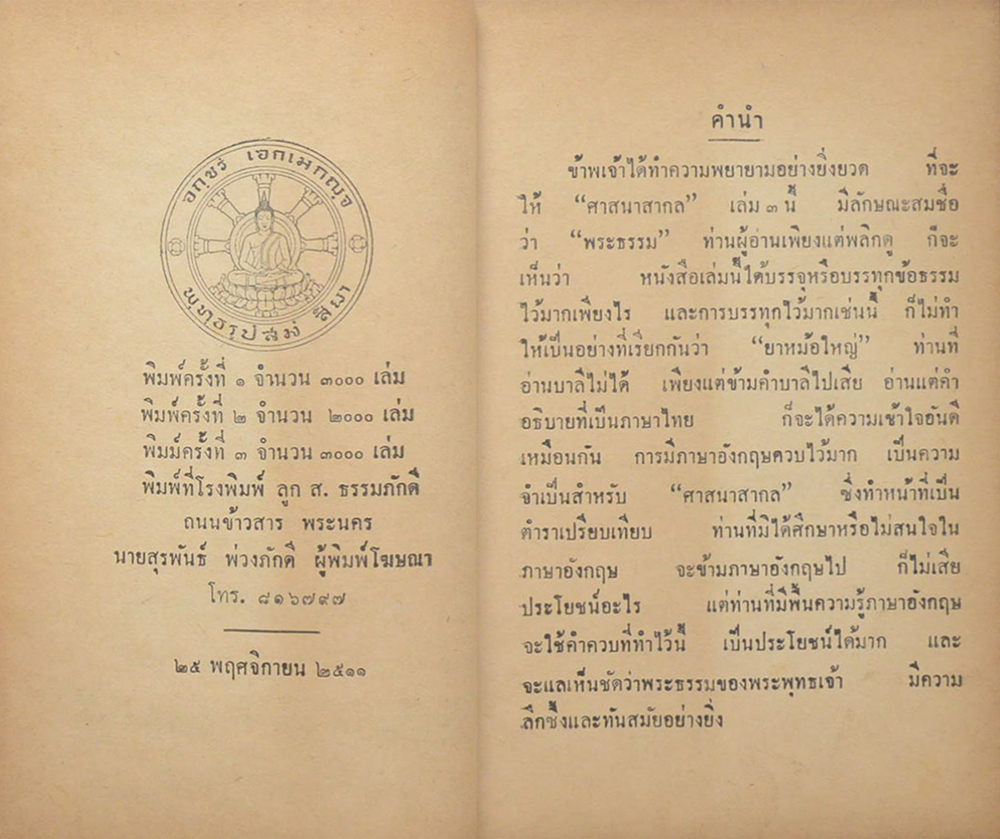 อกฺขรํ เอกเมกญฺจ
พุทฺธรุปสมํ สิยา
พิมพ์ครั้งที่ ๑ จำนวน ๓๐๐๐ เล่ม
พิมพ์ครั้งที่ ๒ จำนวน ๒๐๐๐ เล่ม
พิมม์ครั้งที่ ๓ จำนวน ๓๐๐๐ เล่ม
พิมพ์ที่โรงพิมพ์ ลูก ส. ธรรมภักดี
ถนนข้าวสาร พระนคร
นายสุรพันธ์ พ่วงภักดี ผู้พิมพ์โฆษณา
โทร. ๘๑๖๗๙๗
๒๕ พฤศจิกายน ๒๕๑๑
คำนำ
ข้าพเจ้าได้ทำความพยายามอย่างยิ่งยวด ที่จะ
ให้ “ศาสนาสากล” เล่ม ๓ นี้ มีลักษณะสมชื่อ
ว่า “พระธรรม” ท่านผู้อ่านเพียงแต่พลิกดู ก็จะ
เห็นว่า หนังสือเล่มนี้ได้บรรจุหรือบรรทุกข้อธรรม
ไว้มากเพียงไร และการบรรทุกไว้มากเช่นนี้ ก็ไม่ทำ
ให้เป็นอย่างที่เรียกกันว่า “ยาหม้อใหญ่” ท่านที่
อ่านบาลีไม่ได้ เพียงแต่ข้ามคำบาลีไปเสีย อ่านแต่คำ
อธิบายที่เป็นภาษาไทย ก็จะได้ความเข้าใจอันดี
เหมือนกัน การมีภาษาอังกฤษควบไว้มาก เป็นความ
จำเป็นสำหรับ “ศาสนาสากล” ซึ่งทำหน้าที่เป็น
ตำราเปรียบเทียบ ท่านที่มิได้ศึกษาหรือไม่สนใจใน
ภาษาอังกฤษ จะข้ามภาษาอังกฤษไป ก็ไม่เสีย
ประโยชน์อะไร แต่ท่านที่มีพื้นความรู้ภาษาอังกฤษ
จะใช้คำควบที่ทำไว้นี้ เป็นประโยชน์ได้มาก และ
จะแลเห็นชัดว่าพระธรรมของพระพุทธเจ้า มีความ
ลึกซึ้งและทันสมัยอย่างยิ่ง